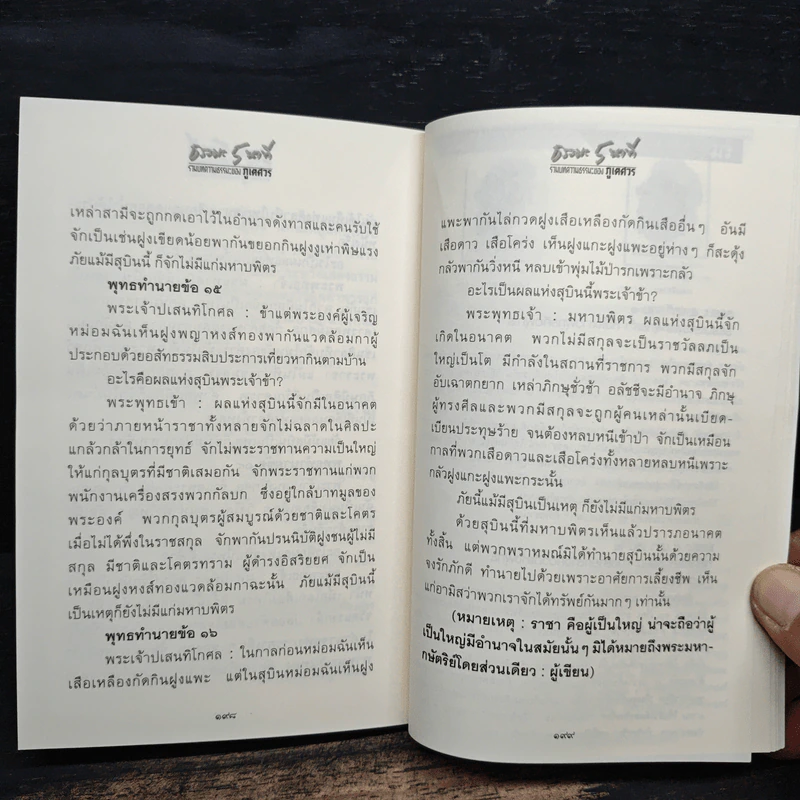 ธรรมะ ๕ นาที
รวมบทความธรรมะของ ภูเตศวร
เหล่าสามีจะถูกกดเอาไว้ในอำนาจดังทาสและคนรับใช้
จักเป็นเช่นฝูงเขียดน้อยพากันขยอกกินฝูงงูเห่าพิษแรง
ภัยแม้มีสุบินนี้ ก็จักไม่มีแก่มหาบพิตร
พุทธทำนายข้อ ๑๕
พระเจ้าปเสนทิโกศล : ข้าแต่พระองค์ผู้เจริญ
หม่อมฉันเห็นฝูงพญาหงส์ทองพากันแวดล้อมกาผู้
ประกอบด้วยอสัทธรรมสิบประการเที่ยวหากินตามบ้าน
อะไรคือผลแห่งสุบินพระเจ้าข้า?
พระพุทธเข้า : ผลแห่งสุบินนี้จักมีในอนาคต
ด้วยว่าภายหน้าราชาทั้งหลายจักไม่ฉลาดในศิลปะ
แกล้วกล้าในการยุทธ์ จักไม่พระราชทานความเป็นใหญ่
ให้แก่กุลบุตรที่มีชาติเสมอกัน จักพระราชทานแก่พวก
พนักงานเครื่องสรงพวกกัลบก ซึ่งอยู่ใกล้บาทมูลของ
พระองค์ พวกกุลบุตรผู้สมบูรณ์ด้วยชาติและโคตร
เมื่อไม่ได้พึ่งในราชสกุล จักพากันปรนนิบัติฝูงชนผู้ไม่มี
สกุล มีชาติและโคตรทราม ผู้ดำรงอิสริยยศ จักเป็น
เหมือนฝูงหงส์ทองแวดล้อมกาฉะนั้น ภัยแม้มีสุบินนี้
เป็นเหตุก็ยังไม่มีแก่มหาบพิตร
พุทธทำนายข้อ ๑๖
พระเจ้าปเสนทิโกศล : ในกาลก่อนหม่อมฉันเห็น
เสือเหลืองกัดกินฝูงแพะ แต่ในสุบินหม่อมฉันเห็นฝูง
๑๙๘
ธรรมะ ๕ นาที
รวมบทความธรรมะของ ภูเตศวร
แพะพากันไล่กวดฝูงเสือเหลืองกัดกินเสืออื่นๆ อันมี
เสือดาว เสือโคร่ง เห็นฝูงแกะฝูงแพะอยู่ห่างๆ ก็สะดุ้ง
กลัวพากันวิ่งหนี หลบเข้าพุ่มไม้ป่ารกเพราะกลัว
อะไรเป็นผลแห่งสุบินนี้พระเจ้าข้า?
พระพุทธเจ้า : มหาบพิตร ผลแห่งสุบินนี้จัก
เกิดในอนาคต พวกไม่มีสกุลจะเป็นราชวัลลภเป็น
ใหญ่เป็นโต มีกำลังในสถานที่ราชการ พวกมีสกุลจัก
อับเฉาตกยาก เหล่าภิกษุชั่วช้า อลัชชีจะมีอำนาจ ภิกษุ
ผู้ทรงศีลและพวกมีสกุลจะถูกผู้คนเหล่านั้นเบียด-
เบียนประทุษร้าย จนต้องหลบหนีเข้าป่า จักเป็นเหมือน
กาลที่พวกเสือดาวและเสือโคร่งทั้งหลายหลบหนีเพราะ
กลัวฝูงแกะฝูงแพะกระนั้น
ภัยนี้แม้มีสุบินเป็นเหตุ ก็ยังไม่มีแก่มหาบพิตร
ด้วยสุบินนี้ที่มหาบพิตรเห็นแล้วปรารภอนาคต
ทั้งสิ้น แต่พวกพราหมณ์มิได้ทำนายสุบินนั้นด้วยความ
จงรักภักดี ทำนายไปด้วยเพราะอาศัยการเลี้ยงชีพ เห็น
แก่อามิสว่าพวกเราจักได้ทรัพย์กันมากๆ เท่านั้น
(หมายเหตุ : ราชา คือผู้เป็นใหญ่ น่าจะถือว่าผู้
เป็นใหญ่มีอำนาจในสมัยนั้นๆ มิได้หมายถึงพระมหา-
กษัตริย์โดยส่วนเดียว : ผู้เขียน)
๑๙๙